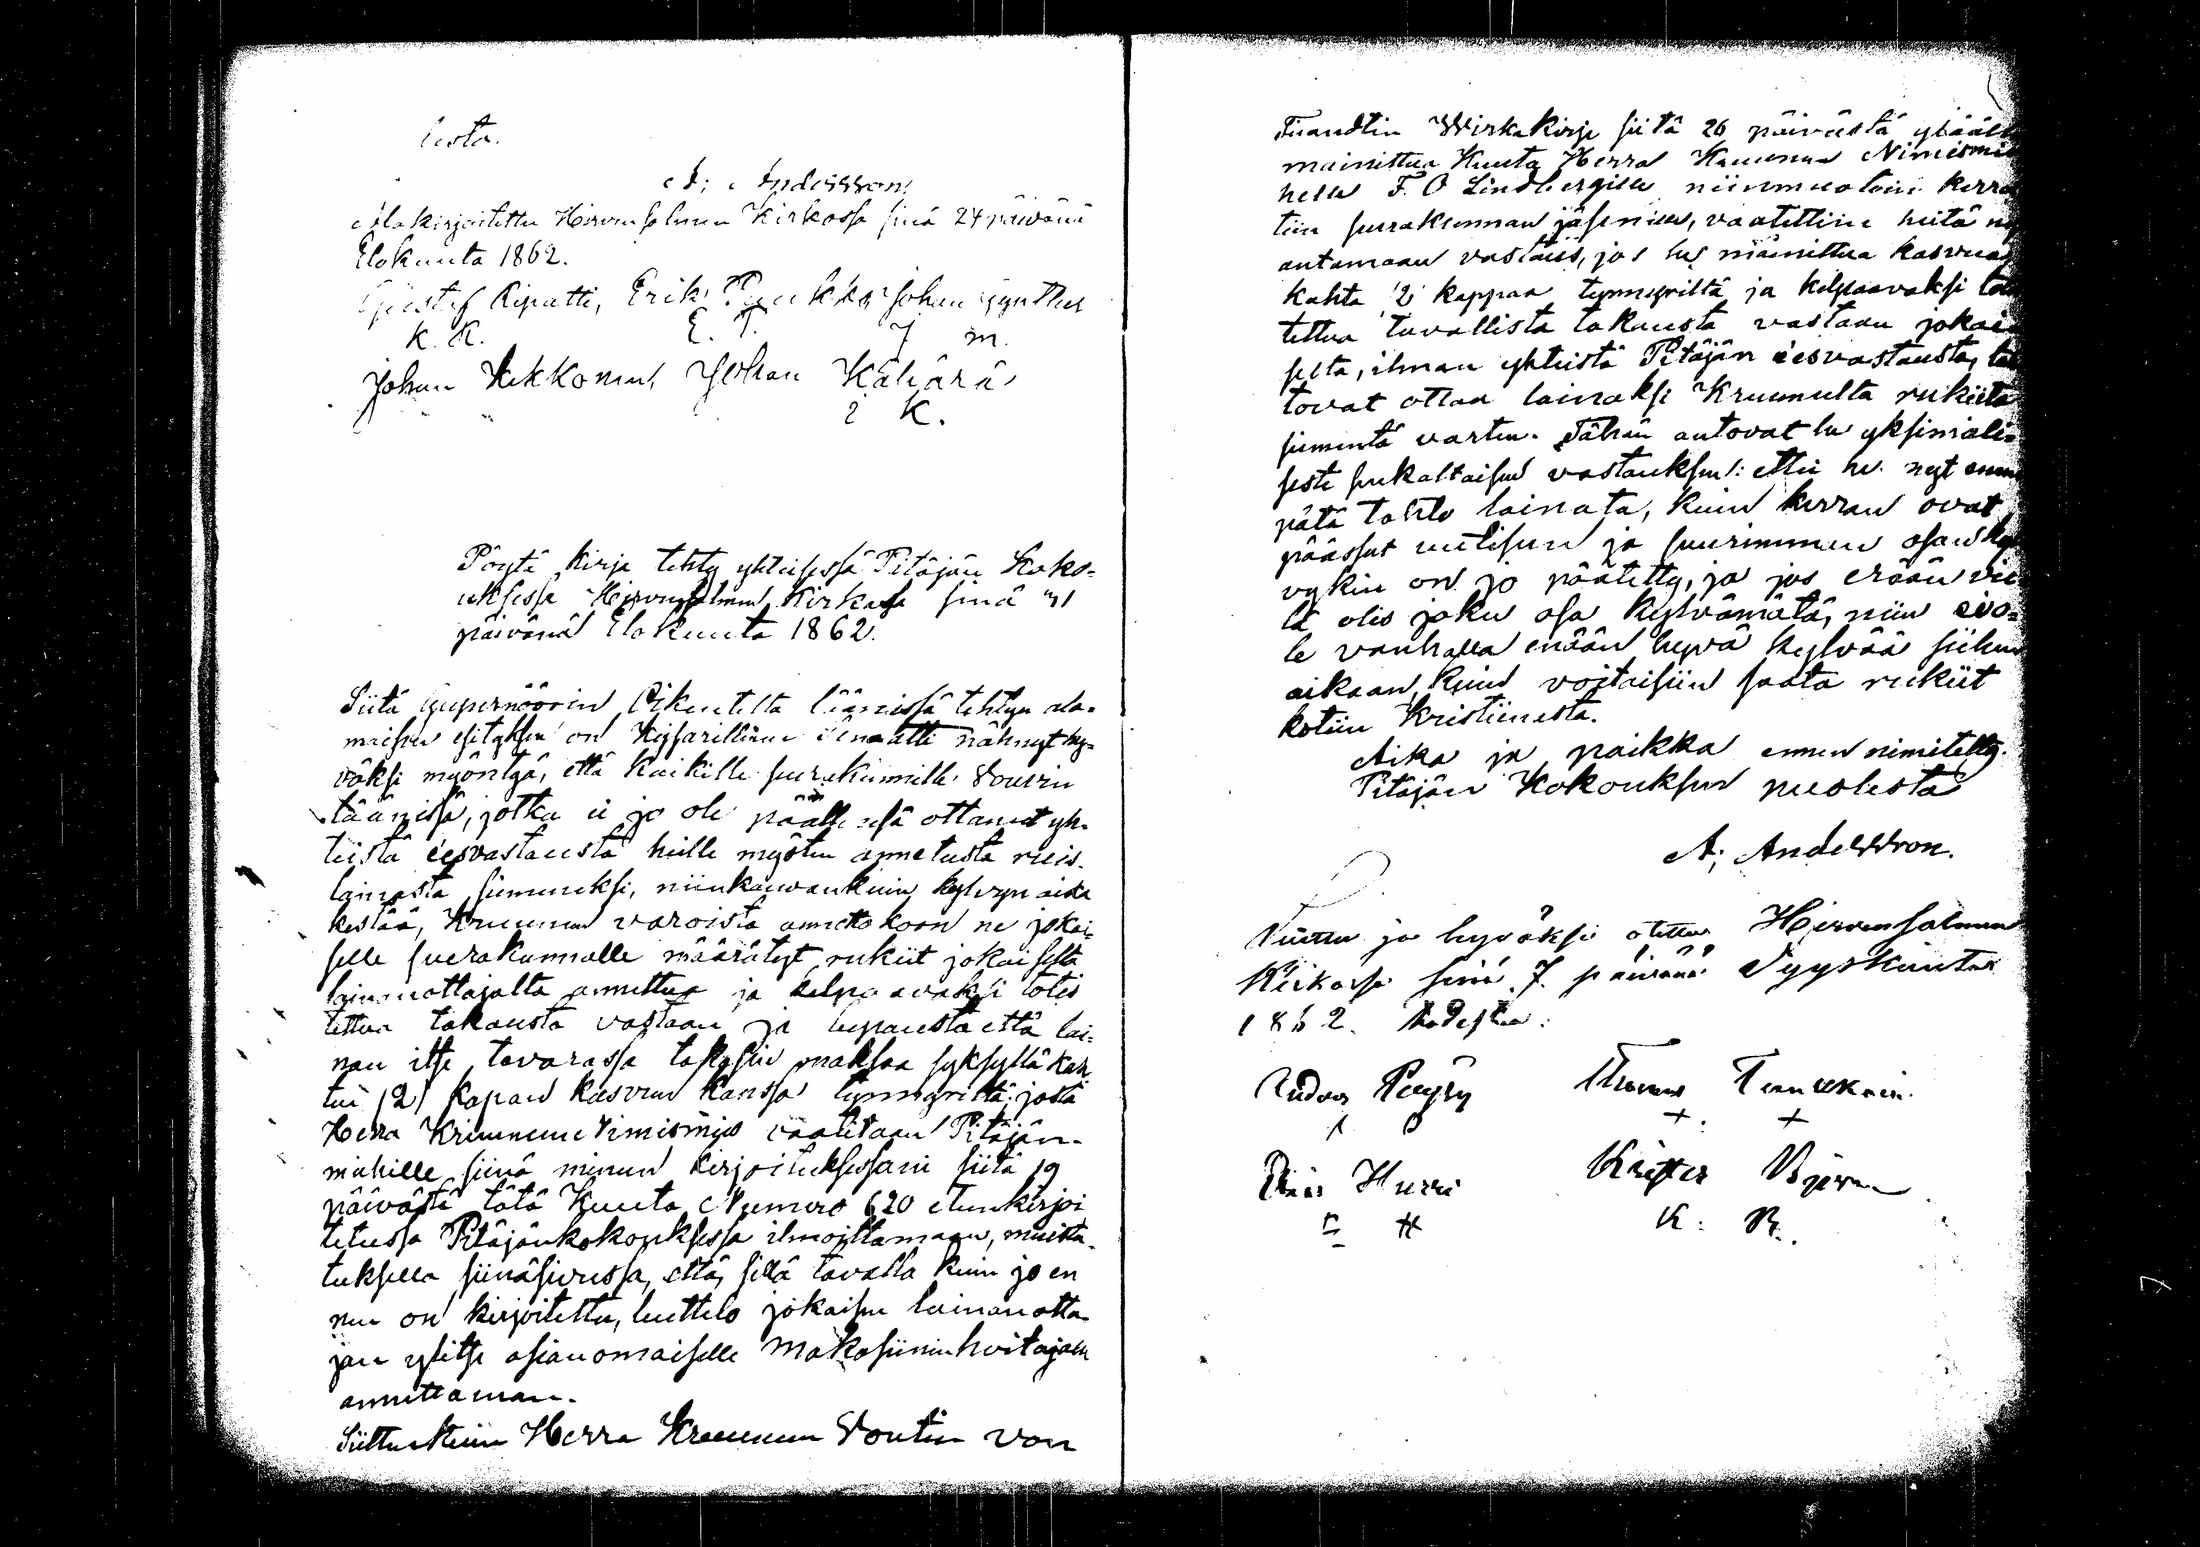 lista.
A; Andersson.
Alakirjoitettu Hirvensalmen Kirkossa sinä 24 päivänä
Elokuuta 1862.
Gustaf Ripatti, Erik Pynkkö Johan
K. R. E. P. J m.
Johan Kekkonen, Johan Kähärä
K.
Pöytä kirja tehty yhteisessä Pitäjän Koko-
uksessa Hirvensalmen Kirkossa sinä 31
päivänä Elokuuta 1862.
Siitä Gupernöörin Oikeutelta läänissä tehtyn ala-
maisen esityksen on Keisarillinen Senaatti nähnyt hy-
väksi myöntyä, että kaikille seurakunnille Souvin
läänissä, jotka ei jo ole päällensä ottanut yh-
teistä eesvastausta heille myöten annetusta ruis-
lainasta siemeneksi, niinkauvankuin kylvyn aika
kestää, Kruunun varoista annettakoon ne jokai-
selle seurakunnalle määrätyt rukiit jokaiselta
lainanottajalta annettua ja kelpaavaksi totis
tettua takausta vastaan ja lupausta että lai-
nan itse tavarassa takasin maksaa syksyllä kah
den (2) kapan kasvun kanssa tynnyriltä; josta
Herra Kruunun Nimismies vaaditaan Pitäjän-
miehille siinä minun kirjoituksessani siitä 19
päivästä tätä Kuuta Numero 620 etunkirjoi
tetussa Pitäjänkokouksessa ilmoittamaan, muistu-
tuksella siinäsivussa, että, sillä tavalla kuin jo en
nen on kirjoitettu, luettelo jokaisen lainanotta-
jan ylitse asianomaiselle Makasiininhoitajalle
annettaman.
Siittenkuin Herra Kruunun Voutin von
Tuandtin Wirkakirje siitä 26 päivästä ylääll
mainittua Kuuta Herra Kruunun Nimismie
helle F. O Lindbergille niinmuotoin kerro
tiin seurakunnan jäsenille, vaatittiin heitä ny
antamaan vastaus, jos he mainittua kasvua
kahta 2 kappaa tynnyriltä ja kelpaavaksi to
tettua tavallista takausta vastaan jokai
selta, ilman yhteistä Pitäjän eesvastausta, tah
tovat ottaa lainaksi Kruunulta rukiita
siementä varten. Tähän antovat he yksimieli-
sesti seukaltaisen vastauksen: että he nyt enem
pätä tahto lainata, kuin kerran ovat
päässet uutiseen ja suurimman osan kyl
vykin on jo päätetty, ja jos erään vie
lä olis joku osa kylvämätä, niin eio-
le vanhalla enään hyvä kylvää siihen
aikaan, kuin voitaisiin saata rukiit
kotiin Kristiinesta.
Aika ja paikka ennen nimitetty.
Pitäjän Kokouksen puolesta
A; Andersson.
Luettu ja hyväksi otettu Hirvensalmen
Kirkossa sinä 7 päivänä Syyskuuta
1862. Todistaa:
Pöyry Thomas Tanskain.
P + +
Hurri Krister Björn
H K: B.
7